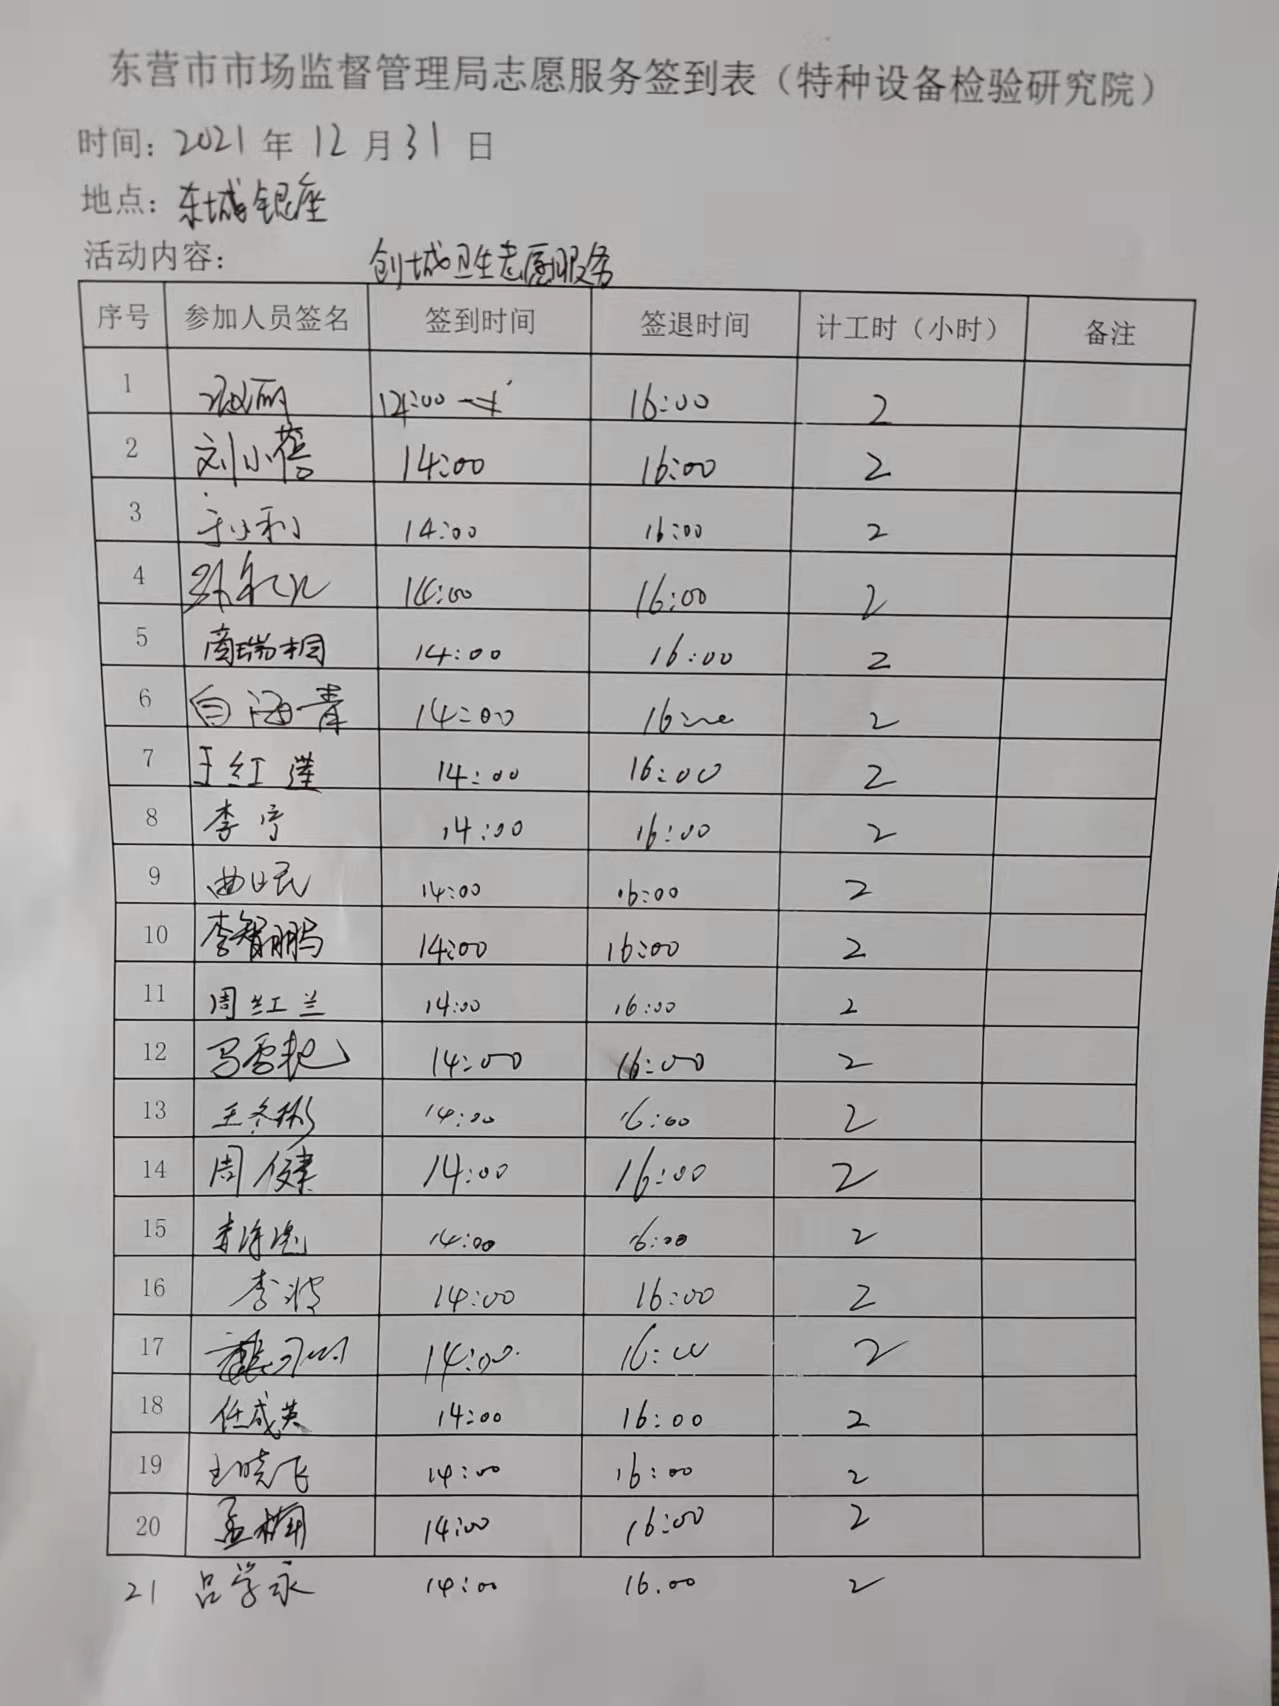 东营市市场监督管理局志愿服务签到表（特种设备检验研究院）
时间：2021年12月31日
地点：东城银座
活动内容： 创城卫生志愿服务
序号 参加人员签名 签到时间 签退时间 计工时（小时） 备注
1 16:00 2
2 刘小蓓 14:00 16:00 2
3 14:00 16:00 2
4 14:00 16:00 2
5 商瑞桐 14:00 16:00 2
6 白海青 14:00 16:00 2
7 王红莲 14:00 16:00 2
8 李宁 14:00 16:00 2
9 曲日民 14:00 16:00 2
10 李智鹏 14:00 16:00 2
11 周红兰 14:00 16:00 2
12 马雪艳 14:00 16:00 2
13 王冬彬 14:00 16:00 2
14 周健 14:00 16:00 2
15 14:00 16:00 2
16 李波 14:00 16:00 2
17 14:00 16:00 2
18 任成英 14:00 16:00 2
19 王晓飞 14:00 16:00 2
20 孟楠 14:00 16:00 2
21 吕学永 14:00 16.00 2